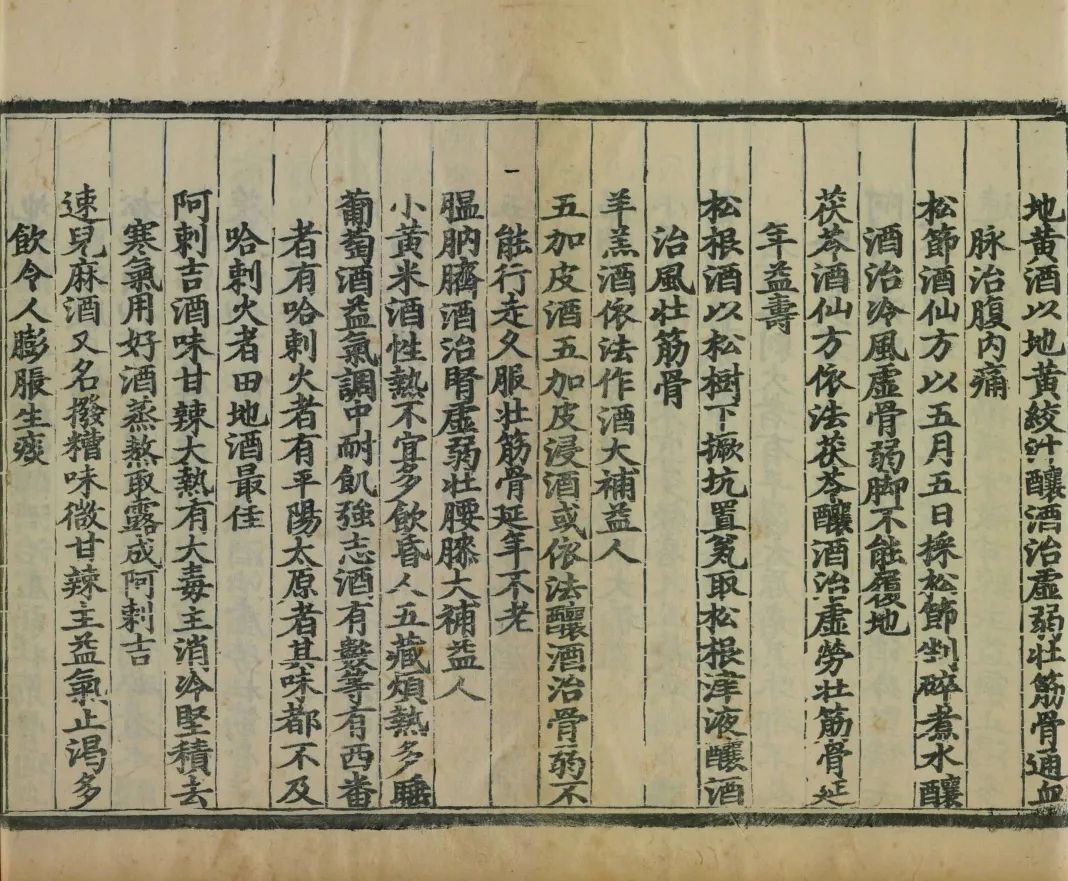 地黃酒以地黃絞汁釀酒治虛弱壯筋骨通血
脉治腹內痛
松節酒仙方以五月五日採松節剉碎煮水釀
酒治冷風虛骨弱脚不能履地
茯苓酒仙方依法茯苓釀酒治虛勞壯筋骨延
年益壽
松根酒以松樹下撅坑置瓮取松根津液釀酒
治風壯筋骨
羊羔酒依法作酒大補益人
五加皮酒五加皮浸酒或依法釀酒治骨弱不
能行走久服壯筋骨延年不老
膃肭臍酒治腎虛弱壯腰膝大補益人
小黃米酒性熱不宜多飲昏人五藏煩熱多睡
葡萄酒益氣調中耐飢強志酒有數等有西番
者有哈剌火者有平陽太原者其味都不及
哈剌火者田地酒最佳
阿剌吉酒味甘辣大熱有大毒主消冷堅積去
寒氣用好酒蒸熬取露成阿剌吉
速兒麻酒又名撥糟味微甘辣主益氣止渴多
飲令人膨脹生痰